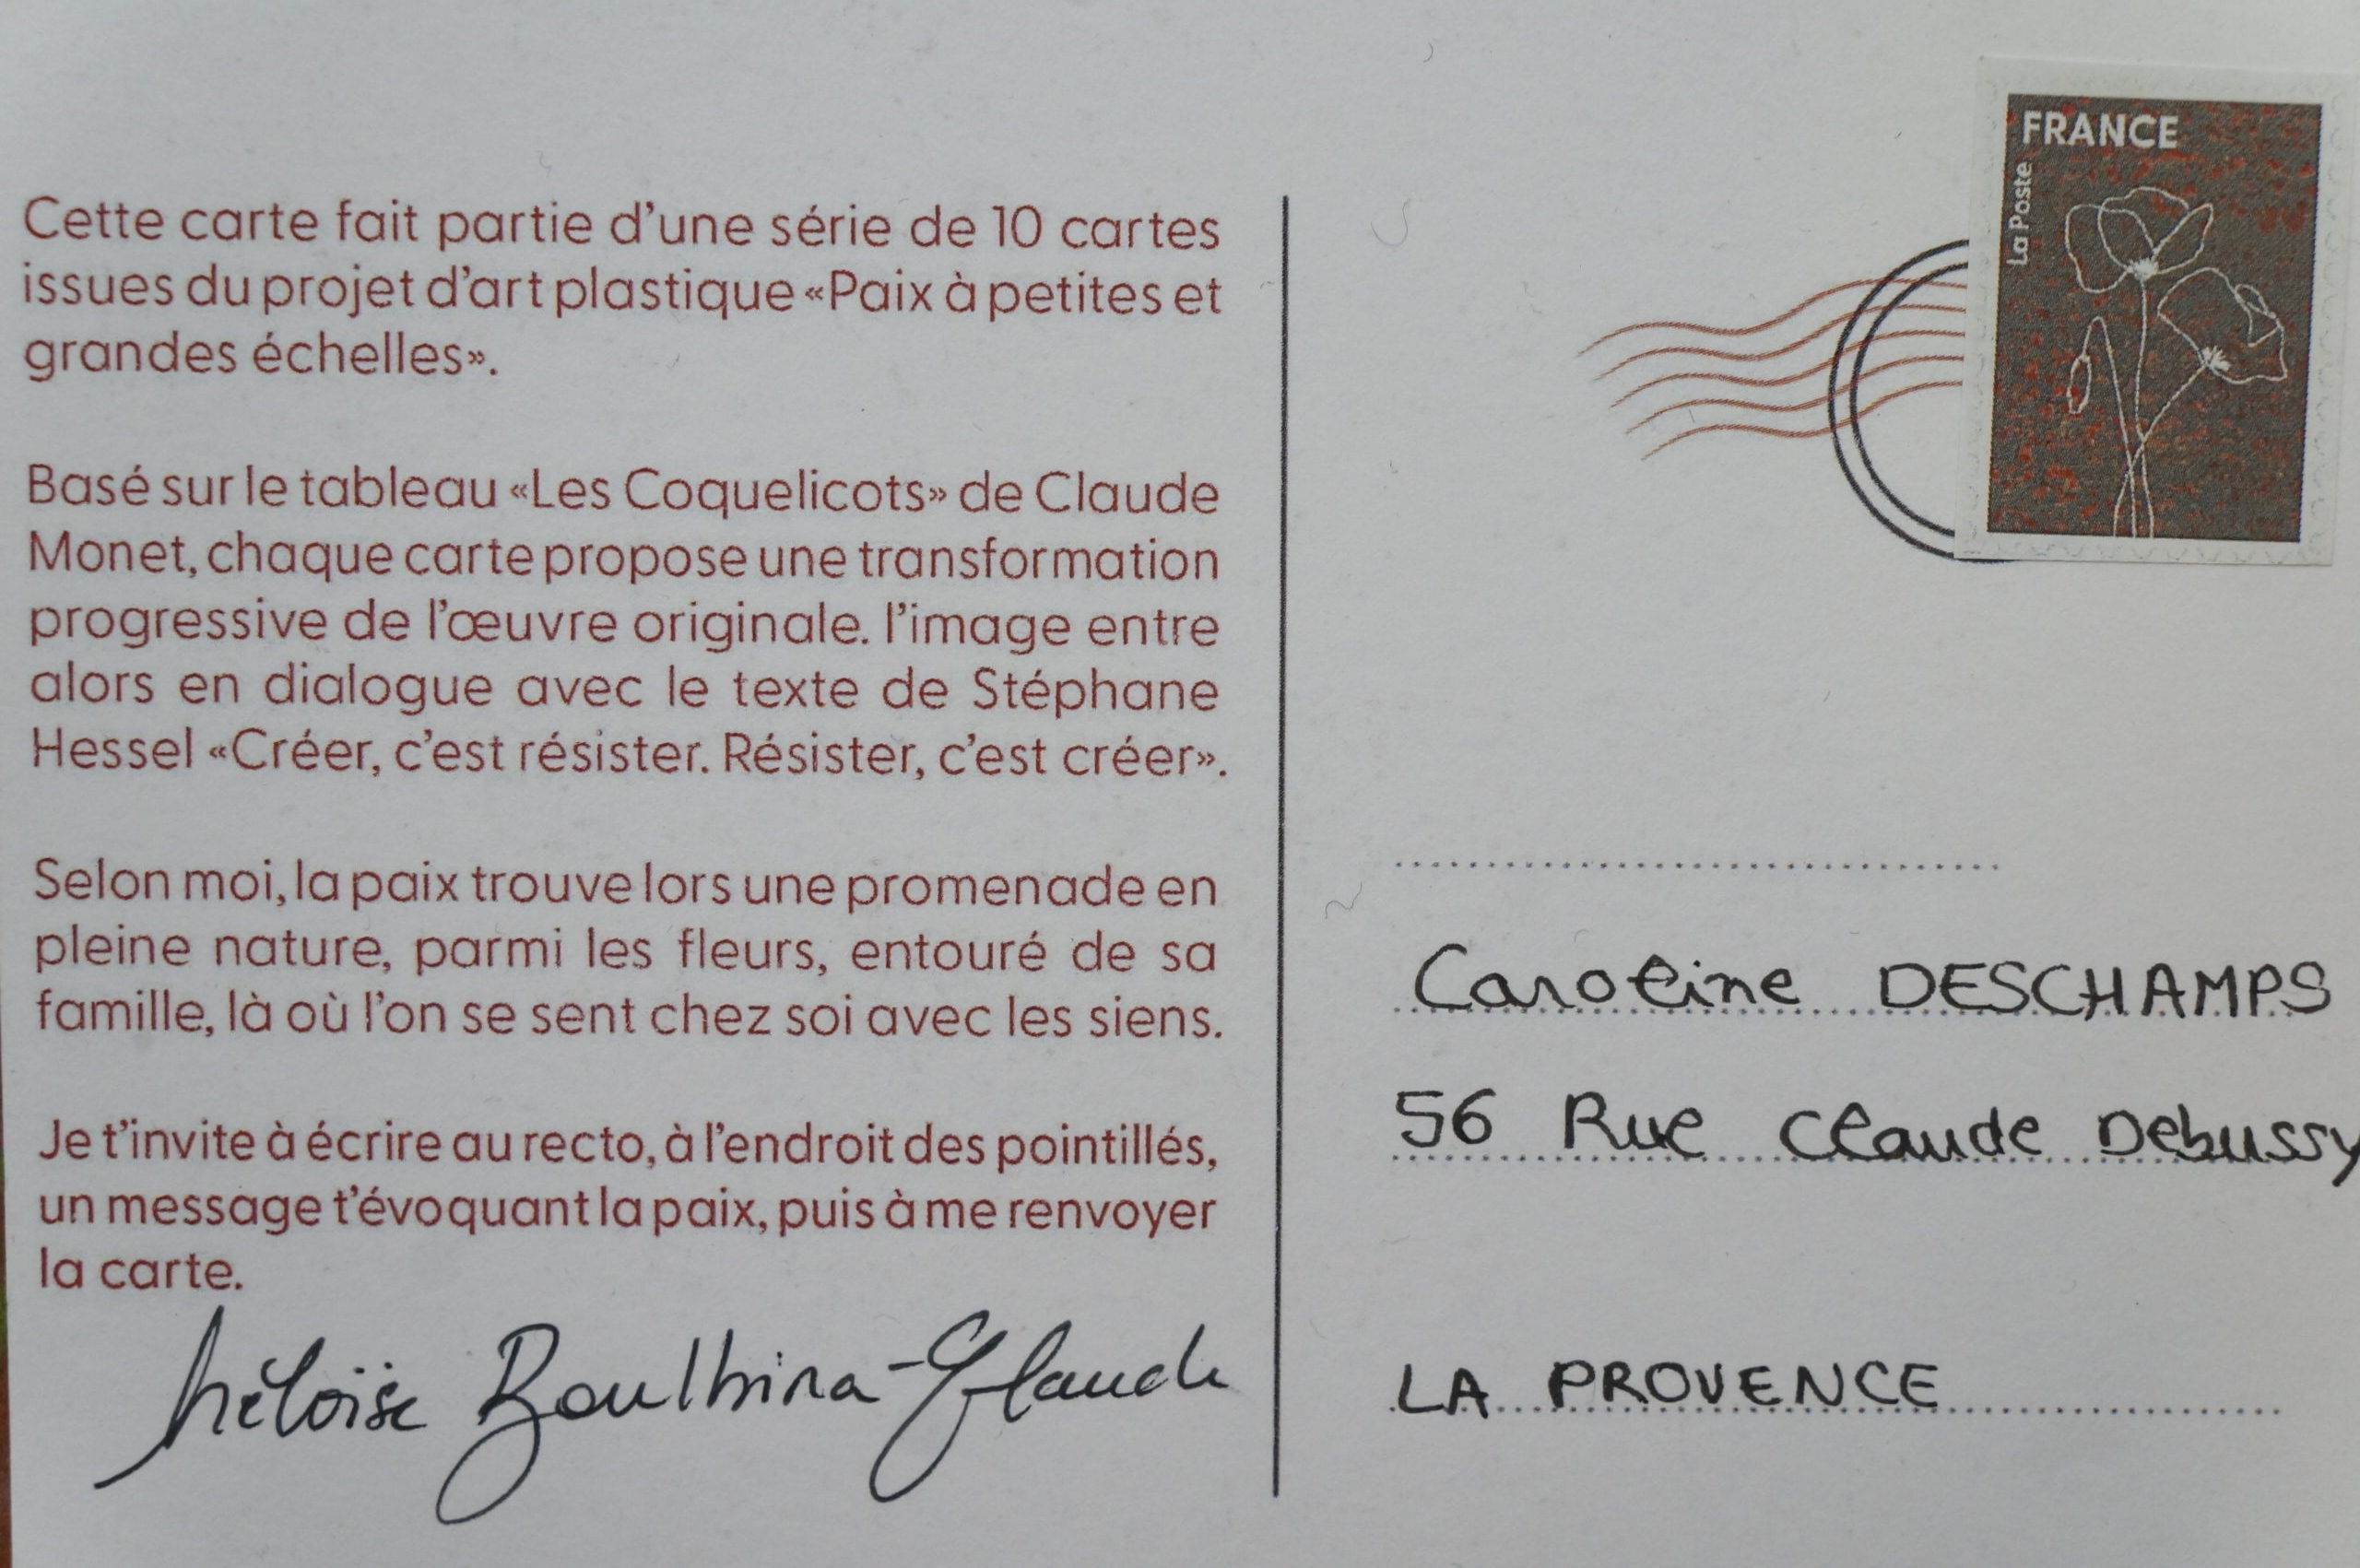 Cette carte fait partie d'une série de 10 cartes
issues du projet d'art plastique «Paix à petites et
grandes échelles».
Basé sur le tableau «Les Coquelicots» de Claude
Monet, chaque carte propose une transformation
progressive de l'œuvre originale. l'image entre
alors en dialogue avec le texte de Stéphane
Hessel «Créer, c'est résister. Résister, c'est créer».
Selon moi, la paix trouve lors une promenade en
pleine nature, parmi les fleurs, entouré de sa
famille, là où l'on se sent chez soi avec les siens.
Je t'invite à écrire au recto, à l'endroit des pointillés,
un message t'évoquant la paix, puis à me renvoyer
la carte.
héloïse
FRANCE
La Poste
Caroline DESCHAMPS
56 Rue Claude Debussy
LA PROVENCE